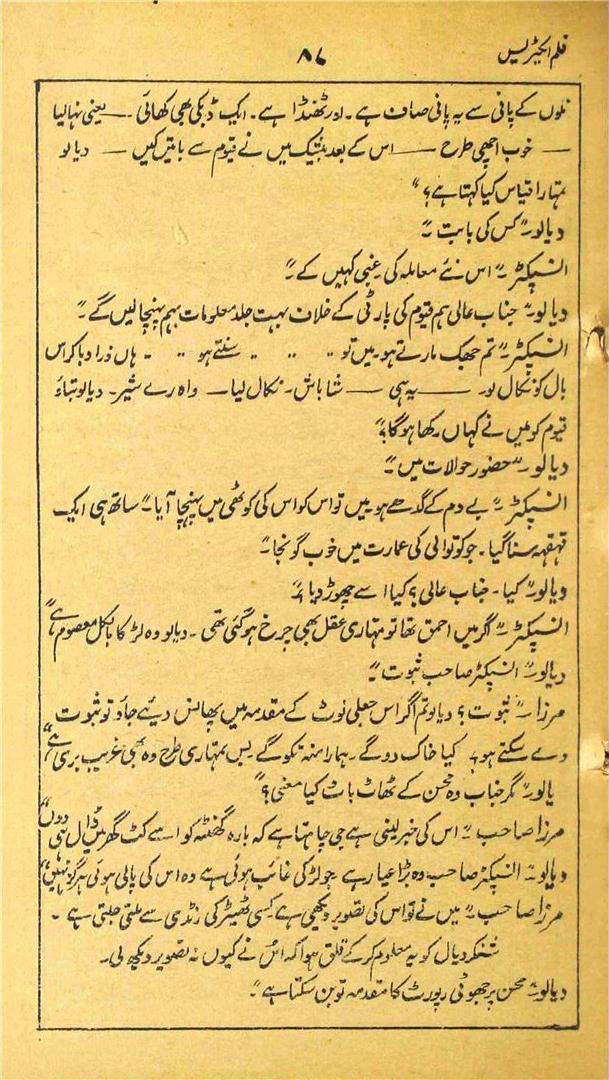 فلم ایکٹریس
۸۷
نلوں کے پانی سے یہ پانی صاف ہے۔ اور ٹھنڈا ہے۔ ایک ڈبکی بھی کھائی — یعنی نہا لیا
— خوب اچھی طرح — اس کے بعد بیٹک میں نے قیوم سے باتیں کیں — دیالو
تمہارا قیاس کیا کہتا ہے؟"
دیالو۔ "کس کی بابت۔"
انسپکٹر۔ "اس نئے معاملہ کی غبی کہیں کے۔"
دیالو۔ "جناب عالی ہم قیوم کی پارٹی کے خلاف بہت جلد معلومات بہم پہنچا لیں گے۔"
انسپکٹر۔ "تم جھک مارتے ہو۔ میں تو ۔ ۔ ۔ ۔ سنتے ہو ۔ ۔ ۔ ہاں ذرا دبا کر اس
بال کو نکال لو۔ — یہ ہی — شاباش۔ نکال لیا — واہ رے شیر۔ دیالو بتاؤ
قیوم کو میں نے کہاں رکھا ہوگا؟"
دیالو۔ "حضور حوالات میں۔"
انسپکٹر۔ "بے دم کے گدھے ہو۔ میں تو اس کو اس کی کوٹھی میں پہنچا آیا۔" ساتھ ہی ایک
قہقہہ سنا گیا۔ جو کوتوالی کی عمارت میں خوب گونجا۔
دیالو۔ "کیا۔ جناب عالی؟ کیا اسے چھوڑ دیا؟"
انسپکٹر۔ "اگر میں احمق تھا تو تمہاری عقل بھی چرخ ہو گئی تھی۔ دیالو وہ لڑکا بالکل معصوم ہے"
دیالو۔ "انسپکٹر صاحب ثبوت۔"
مرزا۔ "ثبوت؟ دیالو تم اگر اس جعلی نوٹ کے مقدمہ میں پھانس دیئے جاؤ تو ثبوت
دے سکتے ہو؟ کیا خاک دو گے۔ ہمارا منہ تکو گے۔ بس تمہاری طرح وہ بھی غریب بری ہے"
یالو۔ "مگر جناب وہ محسن کے ٹھاٹ باٹ کیا معنی؟"
مرزا صاحب۔ "اس کی خبر لینی ہے جی چاہتا ہے کہ بارہ گھنٹہ کو اسے کٹ گھر میں ڈال ہی دوں"
دیالو۔ "انسپکٹر صاحب وہ بڑا عیار ہے جو لڑکی غائب ہوئی ہے وہ اس کی پالی ہوئی ہرگز نہیں"
مرزا صاحب۔ "میں نے تو اس کی تصویر دیکھی ہے کسی تھیٹر کی رنڈی سے ملتی جلتی ہے۔
شنکر دیال کو یہ معلوم کر کے قلق ہوا کہ اُس نے کیوں نہ تصویر دیکھ لی۔
دیالو۔ "محسن پر جھوٹی رپورٹ کا مقدمہ تو بن سکتا ہے۔"